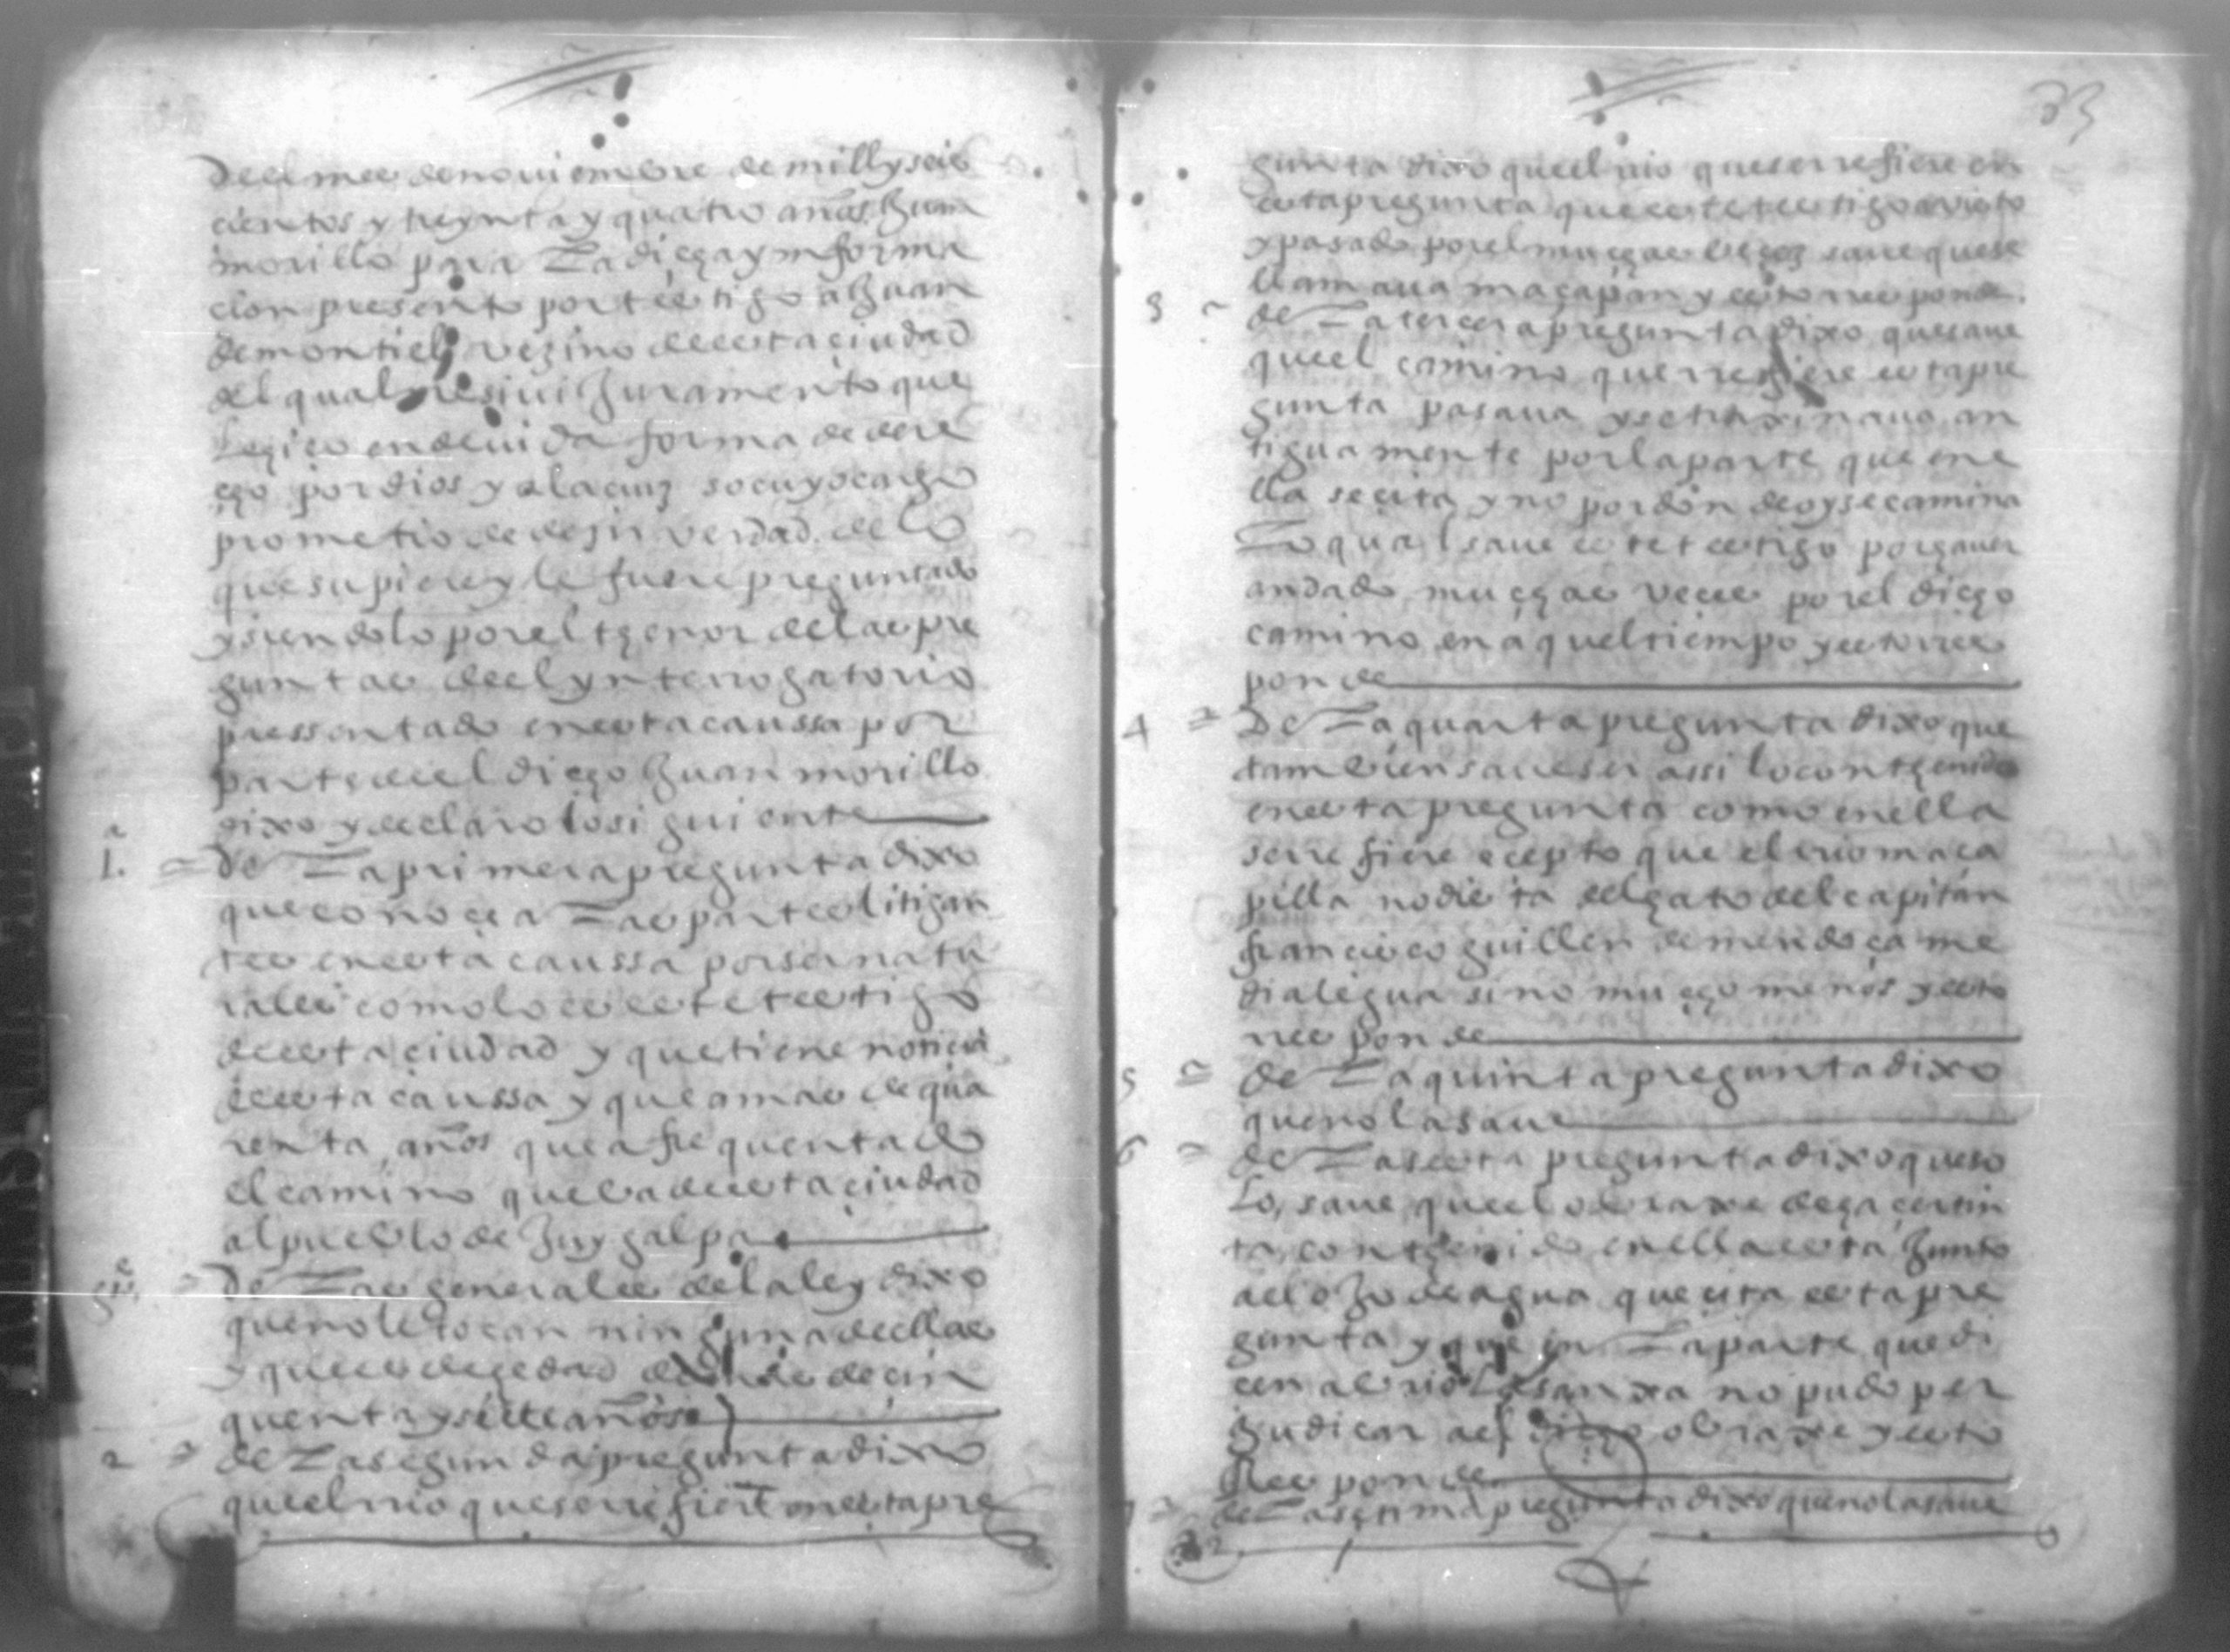 33
de el mes de noviembre de mill y seis
cientos y treynta y quatro años Juan
morillo para La dicha ynforma
cion presento por testigo a Juan
de montiel vezino de esta ciudad
del qual resivi Juramento que
Lo hiço en devida forma de dere
cho por dios y a la cruz so cuyo cargo
prometio de desir verdad de lo
que supiere y le fuere preguntado
y siendolo por el thenor de las pre
guntas de el ynterrogatorio
pressentado en esta caussa por
parte de el dicho Juan morillo
dixo y declaro lo siguiente
1. de La primera pregunta dixo
que conoce a Las partes litigan
tes en esta caussa por ser natu
rales como lo es este testigo
de esta ciudad y que tiene noticia
de esta caussa y que a mas de qua
renta años que a frequentado
el camino que va de esta ciudad
al pueblo de Juygalpa
de Las generales de la ley dixo
que no le tocan ninguna de ellas
y que es de hedad de cin
quenta y siete años
2 de La segunda pregunta dixo
que el rrio que se rrefiere en esta pre
gunta dixo que el rrio que se rrefiere en
esta pregunta que este testigo a visto
y pasado por el muchas veçes save que se
llamava maçapan y esto rresponde
3 de La tercera pregunta dixo que save
que el camino que rrefiere esta pre
gunta pasava y se traxinava an
tiguamente por la parte que en e
lla se cita y no por donde oy se camina
Lo qual save este testigo por haver
andado muchas veces por el dicho
camino en aquel tiempo y esto rres
ponde
4 De La quarta pregunta dixo que
tambien save ser assi lo conthenido
en esta pregunta como en ella
se rrefiere ecepto que el rrio maça
pilla no dista del hato del capitan
francisco guillen de mendoça me
dia legua sino mucho menos y esto
rresponde
5 de La quinta pregunta dixo
que no la save
6 de La sesta pregunta dixo que so
Lo save que el obraxe de haçer tin
ta conthenido en ella esta Junto
a el oJo de agua que cita esta pre
gunta y que en La parte que di
cen abrio La sanxa no pudo per
Judicar a el dicho obraxe y esto
Rresponde
7 de La setima pregunta dixo que no la save